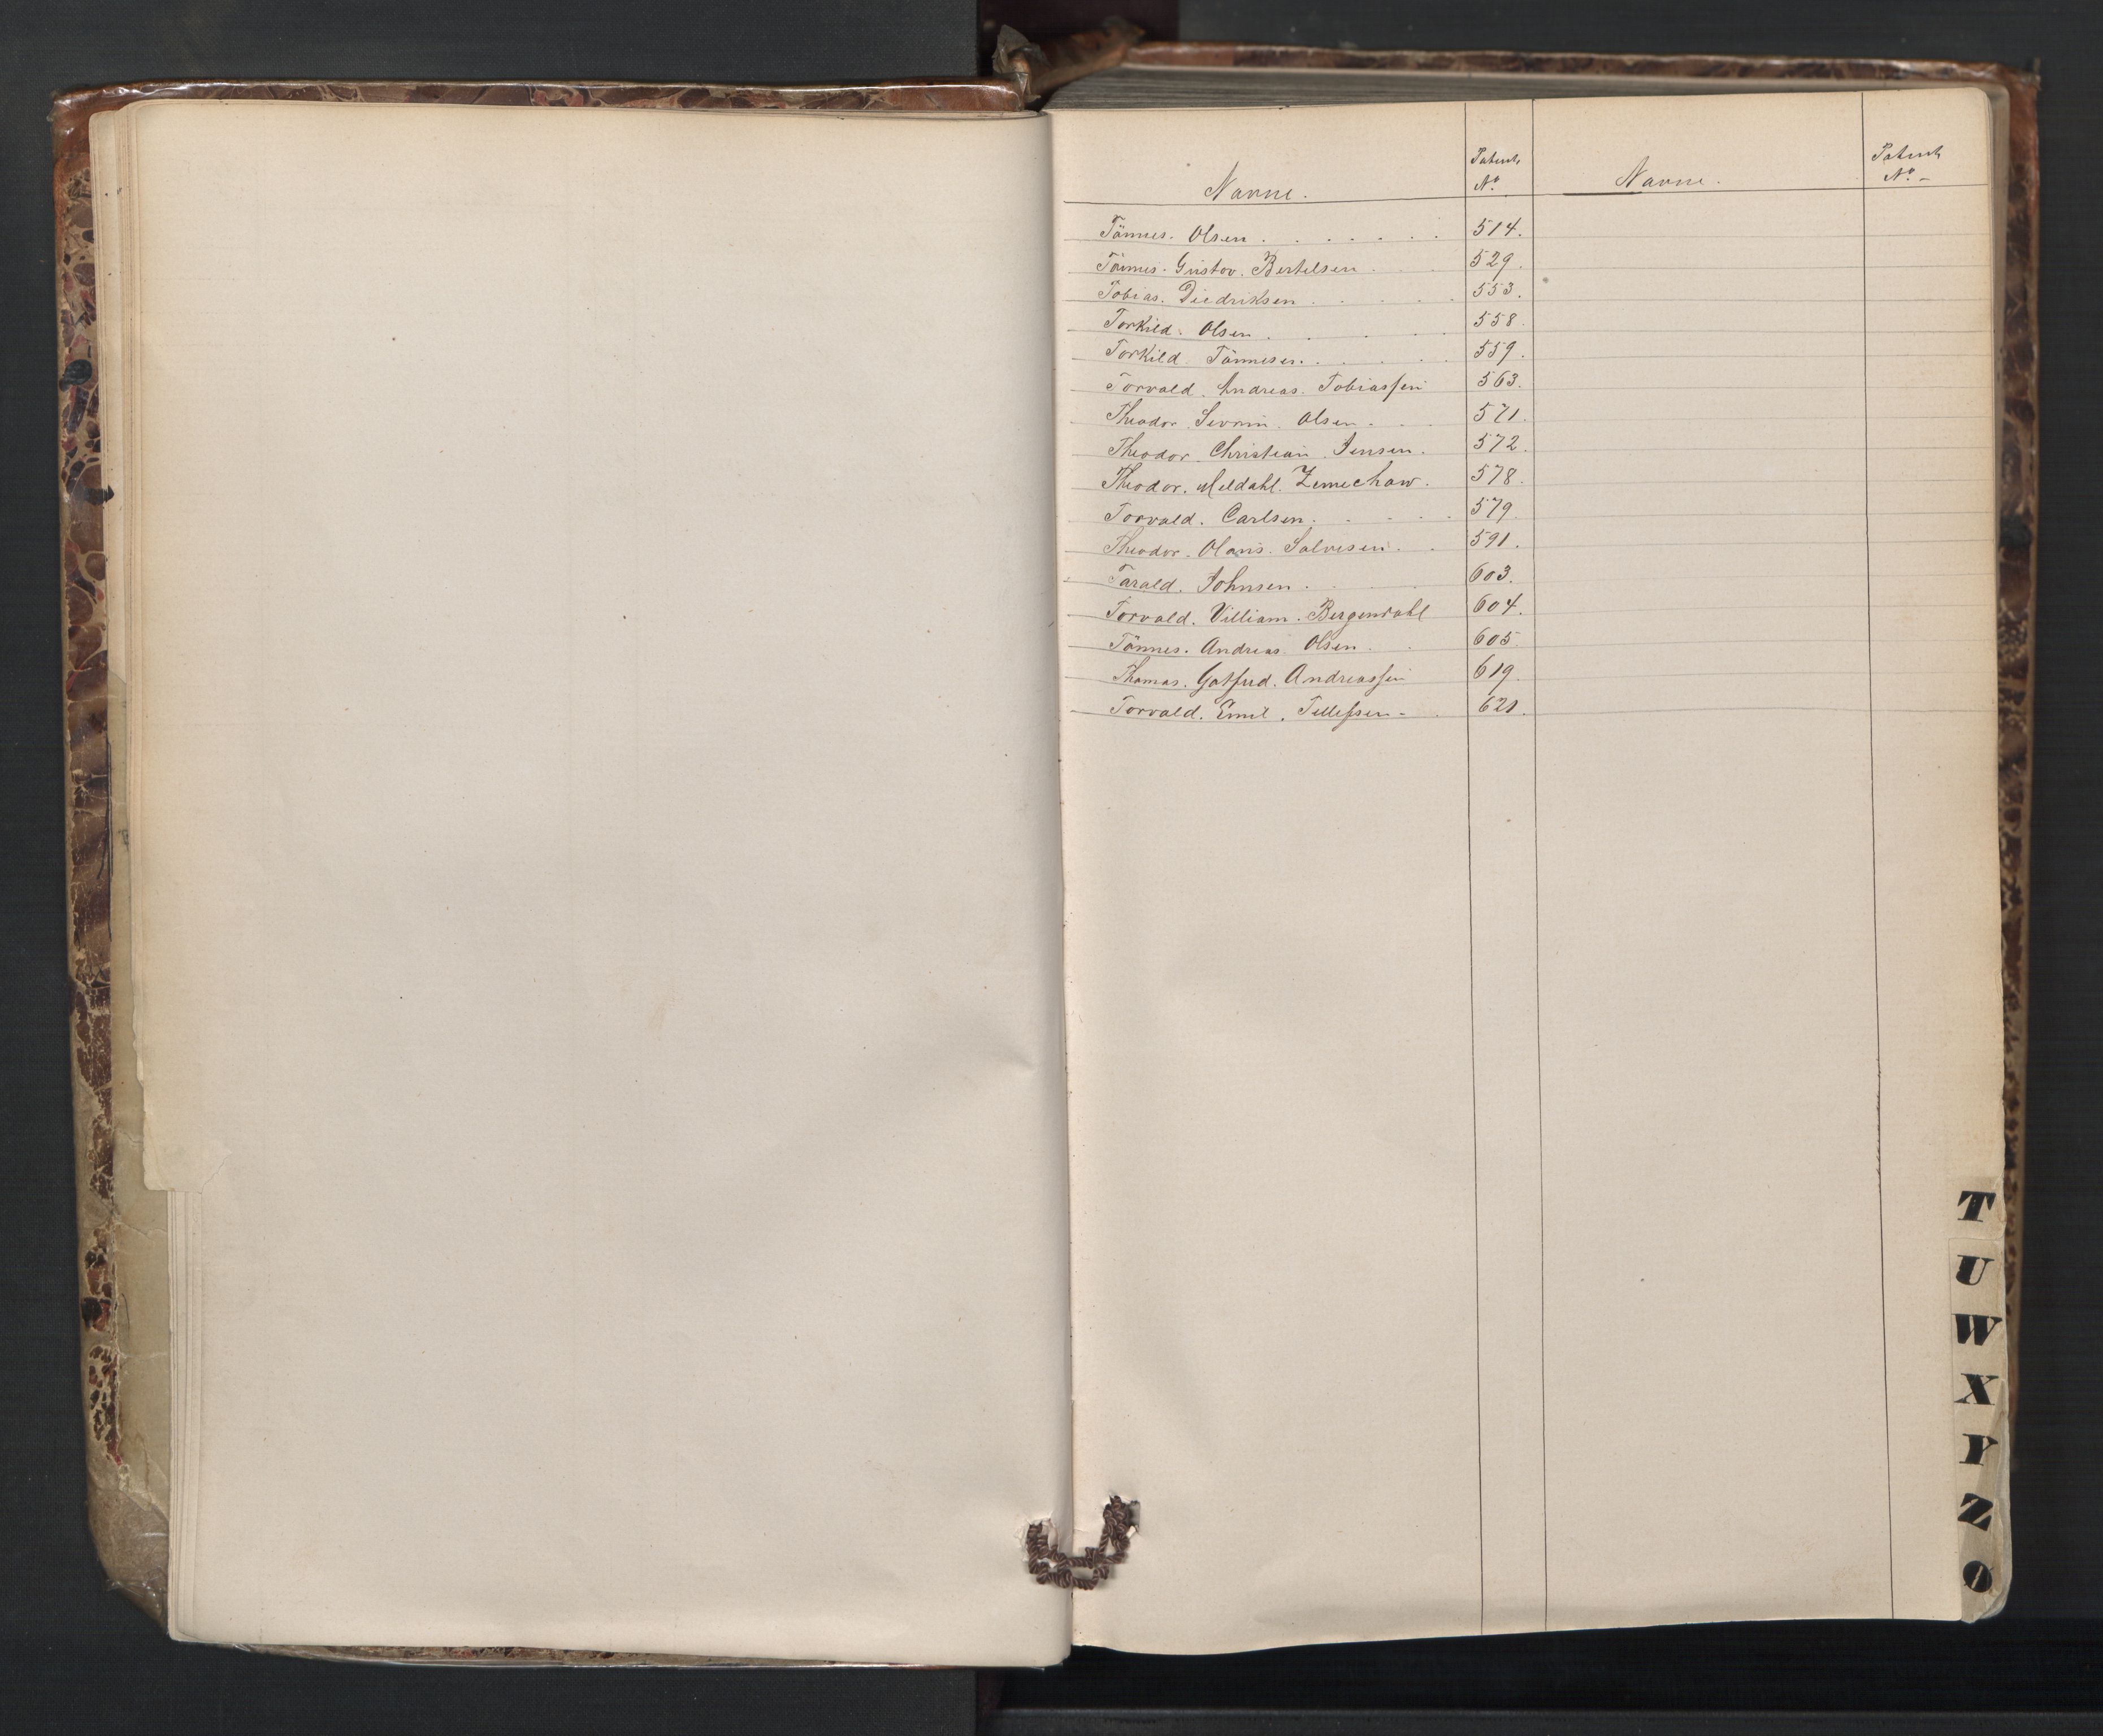 Navne. Patent Navne. Patent
No. No. -
Tönnes. Olsen . . . . . . . 514.
Tönnes. Gustav. Bertelsen . . . 529.
Tobias. Diedriksen . . . . . 553.
Torkild. Olsen . . . . 558.
Torkild. Tönnesen . . . . . 559.
Torvald. Andreas. Tobiassen 563.
Theodor. Severin. Olsen . . 571.
Theodor Christian Jensen. 572.
Theodor. Meldahl. 578.
Torvald. Carlsen . . . . . 579.
Theodor. Olaus. Salvesen. . 591.
Tarald. Johnsen . . . 603.
Torvald. Villiam. Bergendahl 604.
Tönnes. Andreas Olsen . . 605.
Thomas. Gotfred. Andreassen 619.
Torvald. Emil. Tellefsen - . 621.
T
U
W
X
Y
Z
Ø